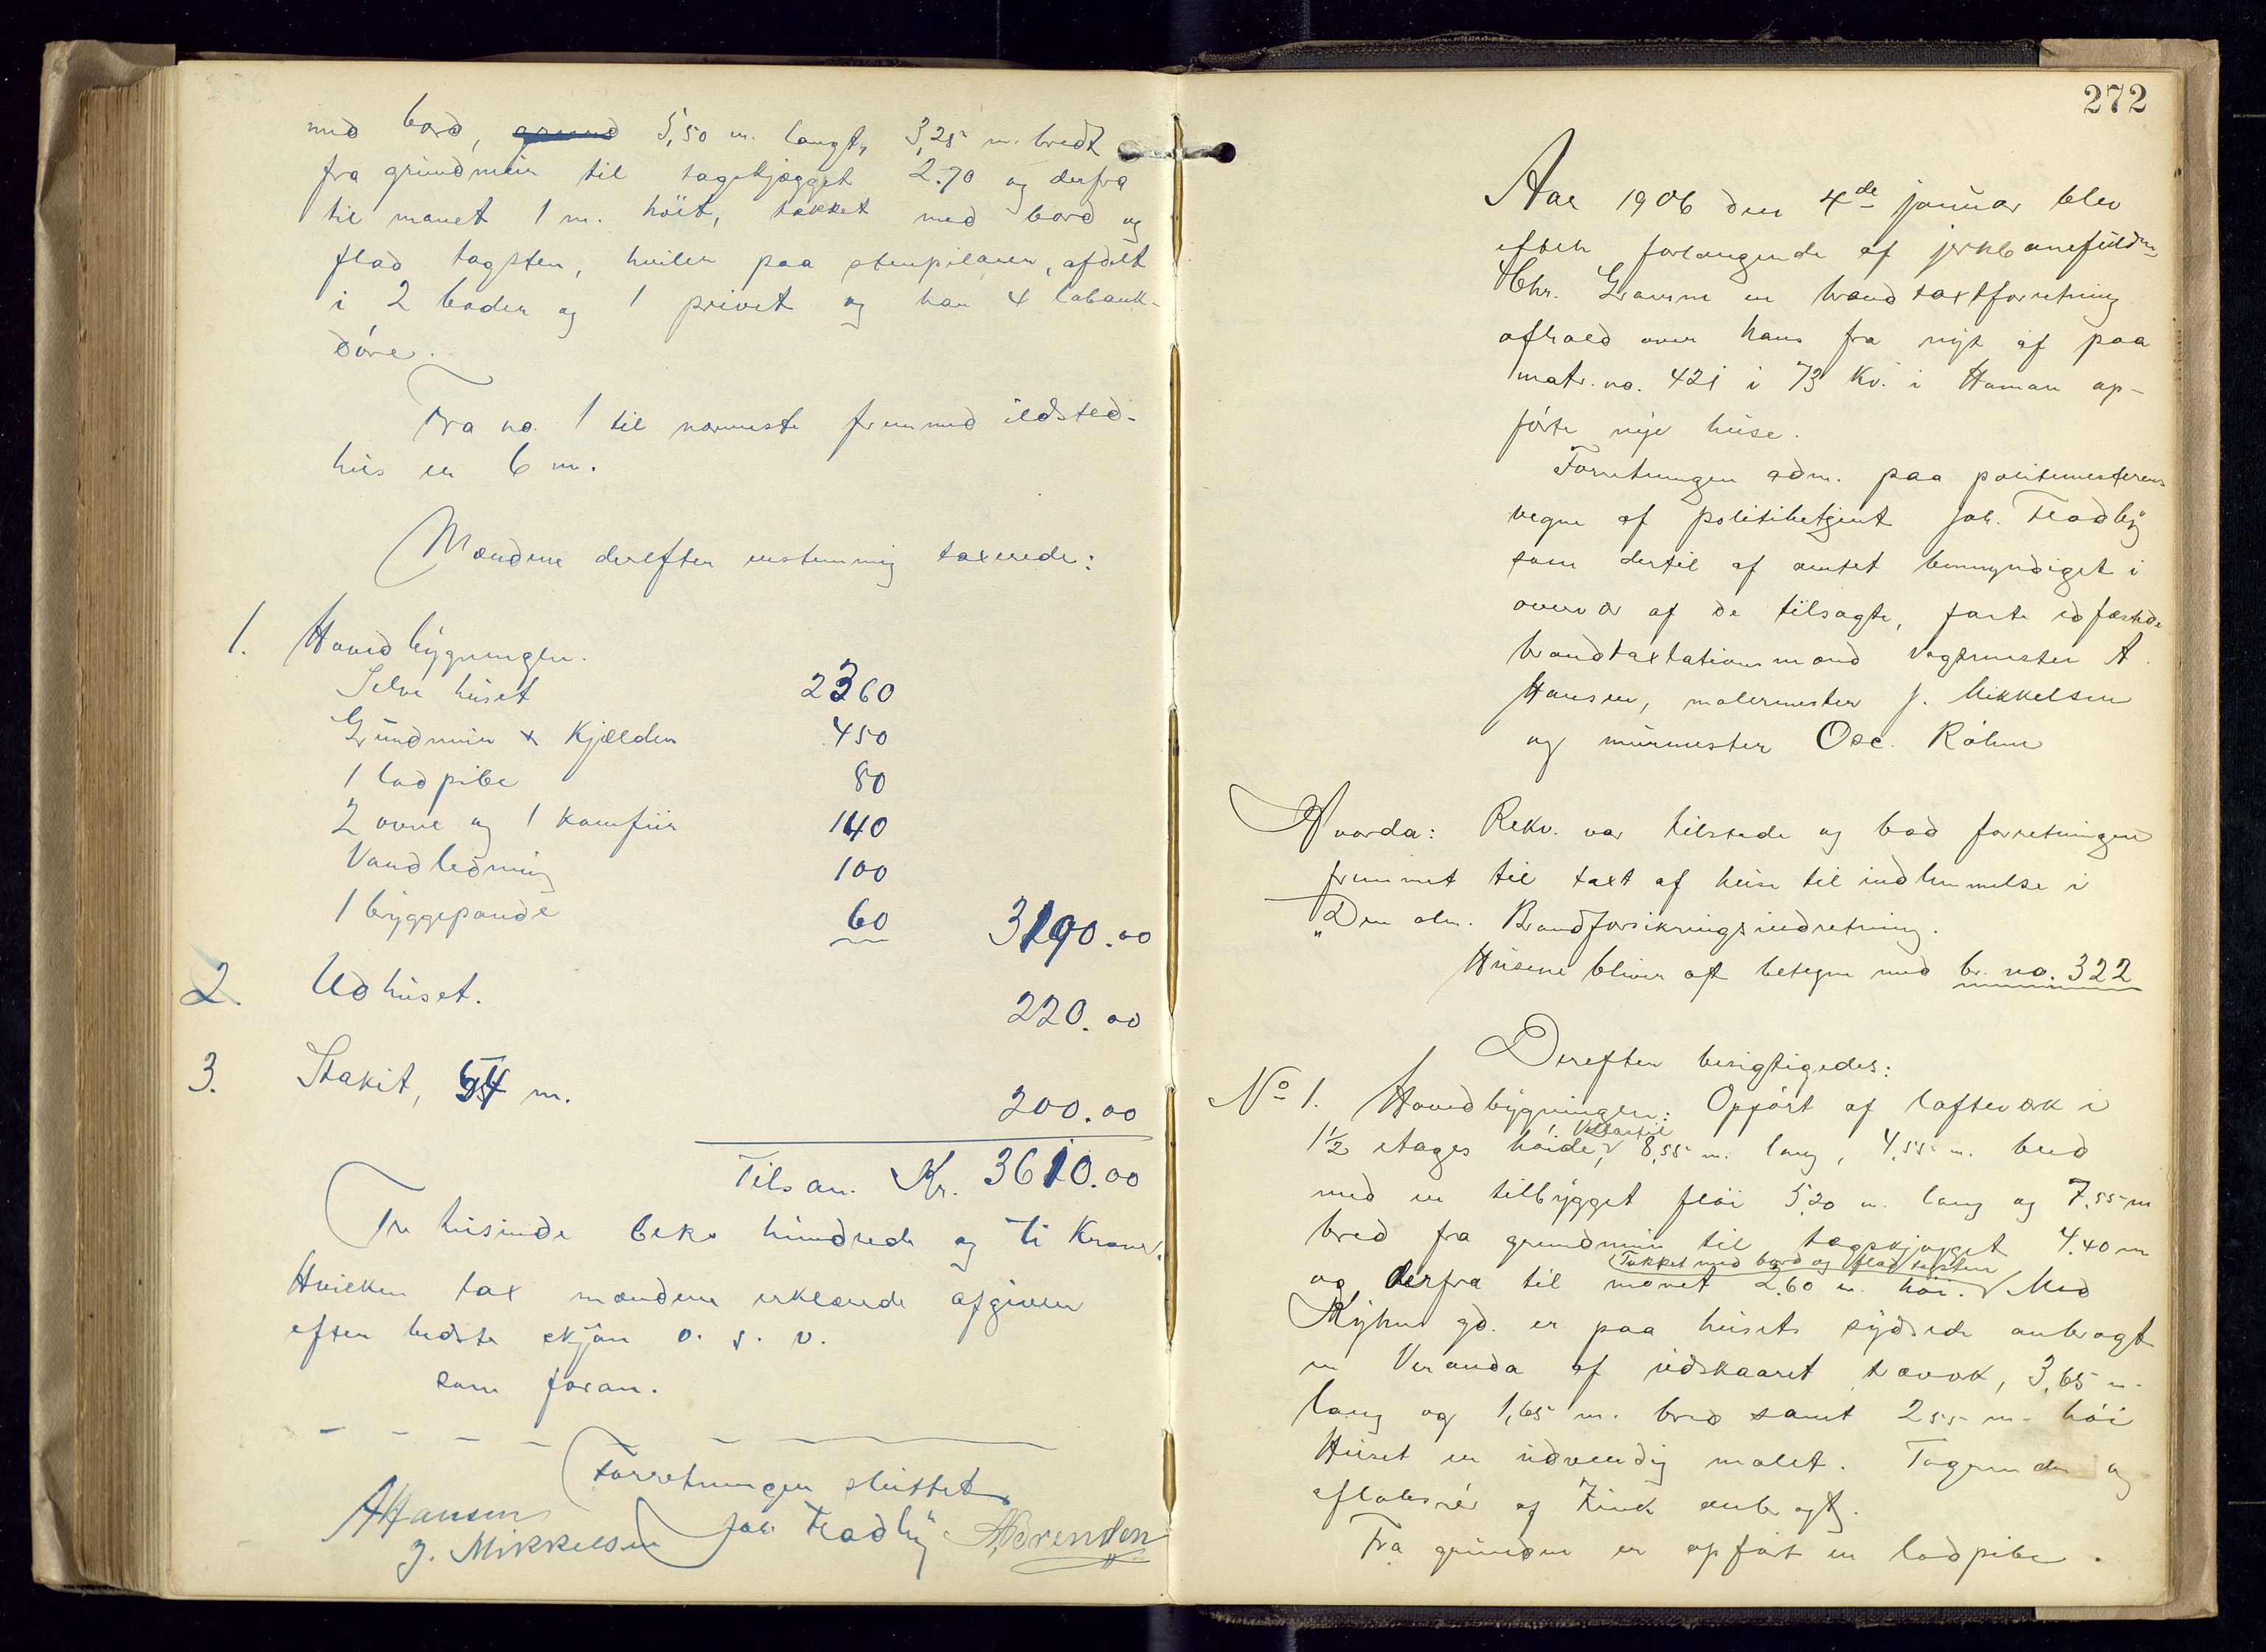 med bord, grund 5,50 m. langt, 3,25 m. bredt
fra grundmur til tagskjægget 2.70 og derfra
til mønet 1 m. høit, tækket med bord og
flad tagsten, hviler paa stenpilarer, afdelt
i 2 boder og 1 privet og har 4 labank-
døre.
Fra no. 1 til nærmeste fremmed ildsted-
hus er 6 m.
Mændene derefter enstemmig taxerede:
1. Hovedbygningen.
Selve huset 2360
Grundmur & Kjælder 450
1 ladpibe 80
2 ovne og 1 Komfür 140
Vandledning 100
1 bryggepande 60 3190.00
2. Udhuset. 220.00
3. Stakit, 54 m. 200.00
Tilsam. Kr. 3610.00
Tre tusinde seks hundrede og ti Kroner.
Hvilken tax mændene erklærede afgiven
efter bedste skjøn o. s. v.
som foran.
Forretningen sluttet
AHansen
J. Mikkelsen Joh. Fladby
272
Aar 1906 den 4de januar blev
efter forlangende af
Chr. en brandtaxtforretning
afholdt over hans fra nyt af paa
matr. no. 421 i 73 Kv. i Hamar op-
førte nye huse.
Forretningen adm. paa politimesterens
vegne af politibetjent Joh. Fladby
som dertil af amtet bemyndiget i
overvær af de tilsagte, faste edfæstede
brandtaxtationsmænd A.
Hansen, malermester J. Mikkelsen
og murmester Osc. Røhne
Hvorda: Rekv. var tilstede og bad forretningen
fremmet til taxt af huse til indlemmelse i
"Den alm. Brandforsikringsindretning.
Husene bliver at betegne med br. no. 322
Derefter besigtigedes:
No 1. Hovedbygningen: Opført af lafteværk i
1½ etages høide, 8,55 m. lang, 4,55 m. bred
med en tilbygget fløi 5,20 m. lang og 7,55 m
bred fra grundmur til tagskjægget 4.40 m
Tækket med bord og flad tagsten
og derfra til mønet 2,60 m. høi. Mod
gd. er paa husets sydside anbragt
en Veranda af udskaaret træværk, 3,65 m.
lang og 1,65 m. bred samt 2,55 m. høi
Huset er udvendig malet. Tagrender og
afløbsrør af Zink anbragt.
Fra grunden er opført en ladpibe.